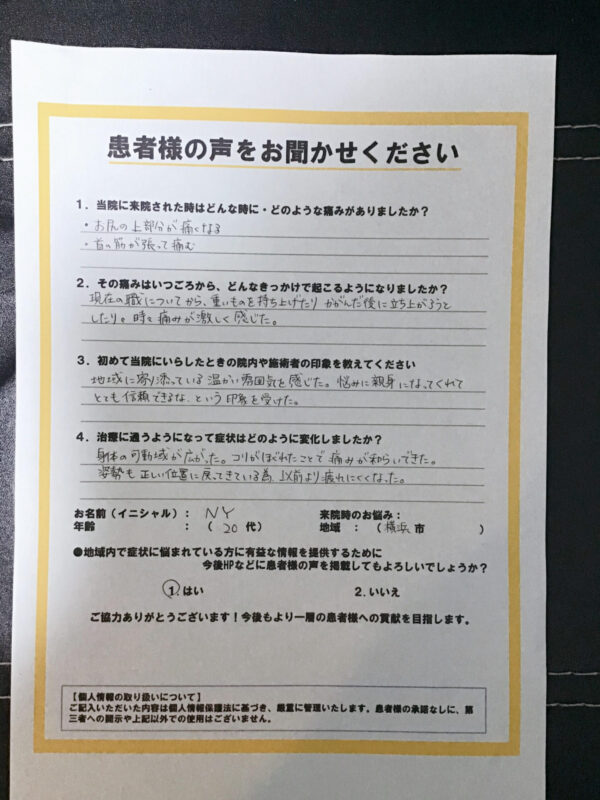 患者様の声をお聞かせください
1．当院に来院された時はどんな時に・どのような痛みがありましたか？
・お尻の上部分が痛くなる
・首の筋が張って痛む
2．その痛みはいつごろから、どんなきっかけで起こるようになりましたか？
現在の職についてから、重いものを持ち上げたり かがんだ後に立ち上がろうと
したり。時々痛みが激しく感じた。
3．初めて当院にいらしたときの院内や施術者の印象を教えてください
地域に寄り添っている温かい雰囲気を感じた。悩みに親身になってくれて
とても信頼できるな、という印象を受けた。
4．治療に通うようになって症状はどのように変化しましたか？
身体の可動域が広がった。コリがほぐれたことで痛みが和らいできた。
姿勢も正しい位置に戻ってきている為、以前より疲れにくくなった。
お名前（イニシャル）： NY 来院時のお悩み：
年齢 ：（ 20 代） 地域 ：（ 横浜 市 ）
●地域内で症状に悩まされている方に有益な情報を提供するために
今後HPなどに患者様の声を掲載してもよろしいでしょうか？
1.はい 2.いいえ
ご協力ありがとうございます！今後もより一層の患者様への貢献を目指します。
【個人情報の取り扱いについて】
ご記入いただいた内容は個人情報保護法に基づき、厳重に管理いたします。患者様の承諾なしに、第
三者への開示や上記以外での使用はございません。